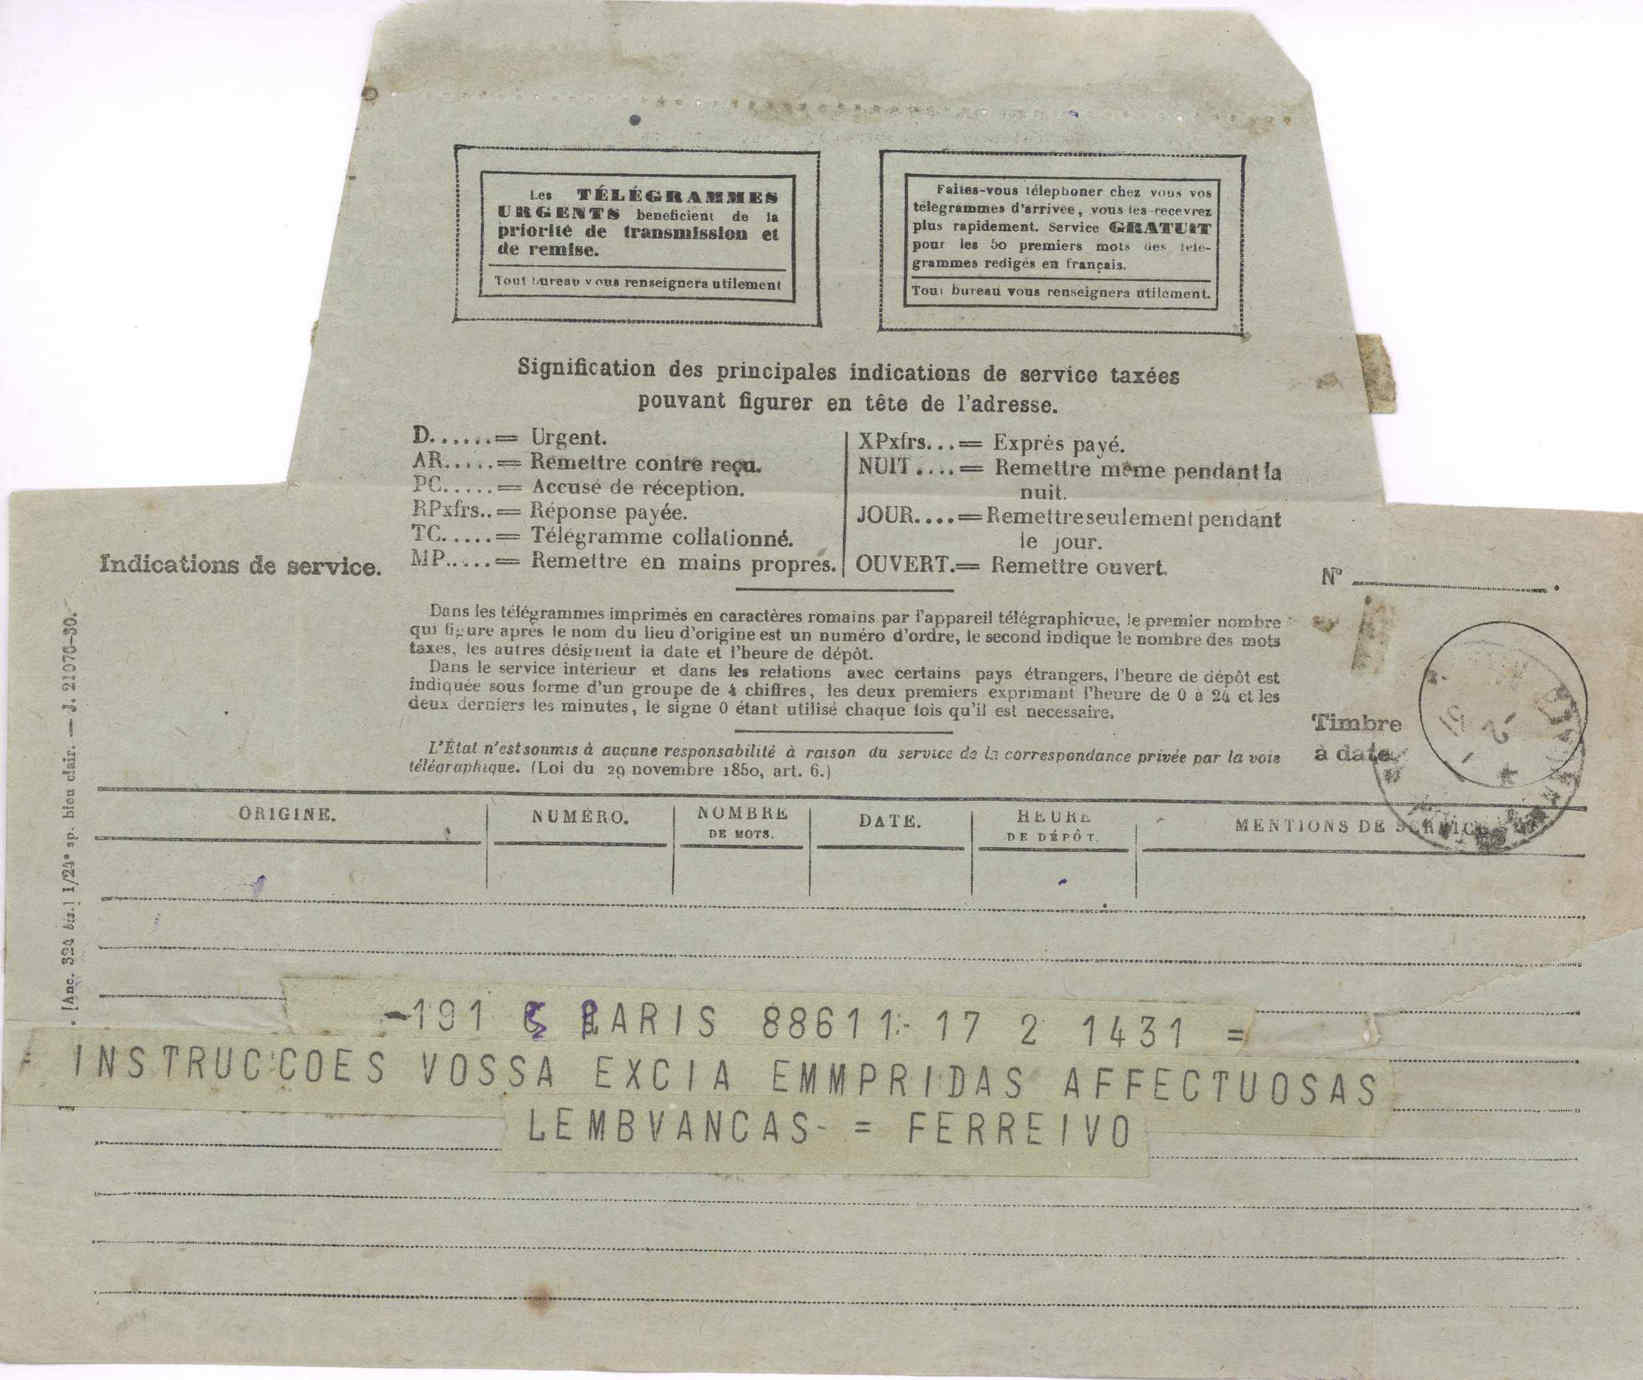 Les TÉLÉGRAMMES
URGENTS bénéficient de la
priorité de transmission et
de remise.
Tout bureau vous renseignera utilement
Faites-vous téléphoner chez vous vos
télégrammes d'arrivée, vous les recevrez
plus rapidement. Service GRATUIT
pour les 50 premiers mots des télé-
grammes rédigés en français.
Tout bureau vous renseignera utilement.
Signification des principales indications de service taxées
pouvant figurer en tête de l'adresse.
D......= Urgent.
AR.....= Remettre contre reçu.
PC.....= Accusé de réception.
RPxfrs..= Réponse payée.
TC.....= Télégramme collationné.
MP.....= Remettre en mains propres.
XPxfrs...= Exprès payé.
NUIT....= Remettre même pendant la
nuit.
JOUR....= Remettre seulement pendant
le jour.
OUVERT.= Remettre ouvert.
Indications de service.
N° .
Dans les télégrammes imprimés en caractères romains par l'appareil télégraphique, le premier nombre
qui figure après le nom du lieu d'origine est un numéro d'ordre, le second indique le nombre des mots
taxés, les autres désignent la date et l'heure de dépôt.
Dans le service intérieur et dans les relations avec certains pays étrangers, l'heure de dépôt est
indiquée sous forme d'un groupe de 4 chiffres, les deux premiers exprimant l'heure de 0 à 24 et les
deux derniers les minutes, le signe 0 étant utilisé chaque fois qu'il est nécessaire.
L'État n'est soumis à aucune responsabilité à raison du service de la correspondance privée par la voie
télégraphique. (Loi du 29 novembre 1850, art. 6.)
Timbre
à date
[Anc. 324 bis.] 1/24e sp. bleu clair. — J. 21076-30.
ORIGINE.
NUMÉRO.
NOMBRE
DE MOTS.
DATE.
HEURE
DE DÉPÔT.
MENTIONS DE SERVICE
-191 PARIS 88611- 17 2 1431 =
INSTRUCCOES VOSSA EXCIA EMMPRIDAS AFFECTUOSAS
LEMBVANCAS- = FERREIVO